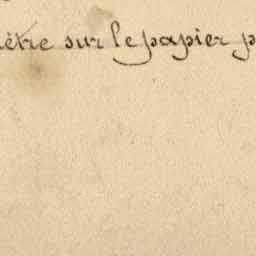 être sur le papier p